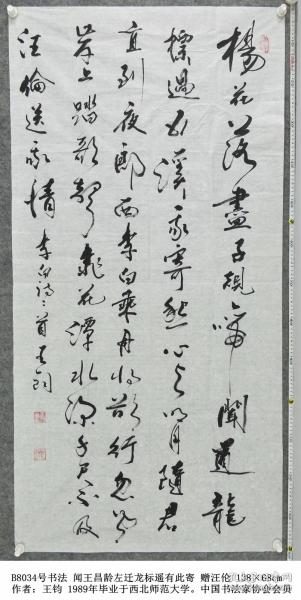 楊花落盡子規啼聞道龍
標過五溪我寄愁心與明月隨君
直到夜郎西李白乘舟将欲行忽聞
岸上踏歌聲桃花潭水深千尺不及
汪倫送我情李白詩二首王鈞
B8034号书法 闻王昌龄左迁龙标遥有此寄 赠汪伦 138×68cm
作者：王钧 1989年毕业于西北师范大学。中国书法家协会会员